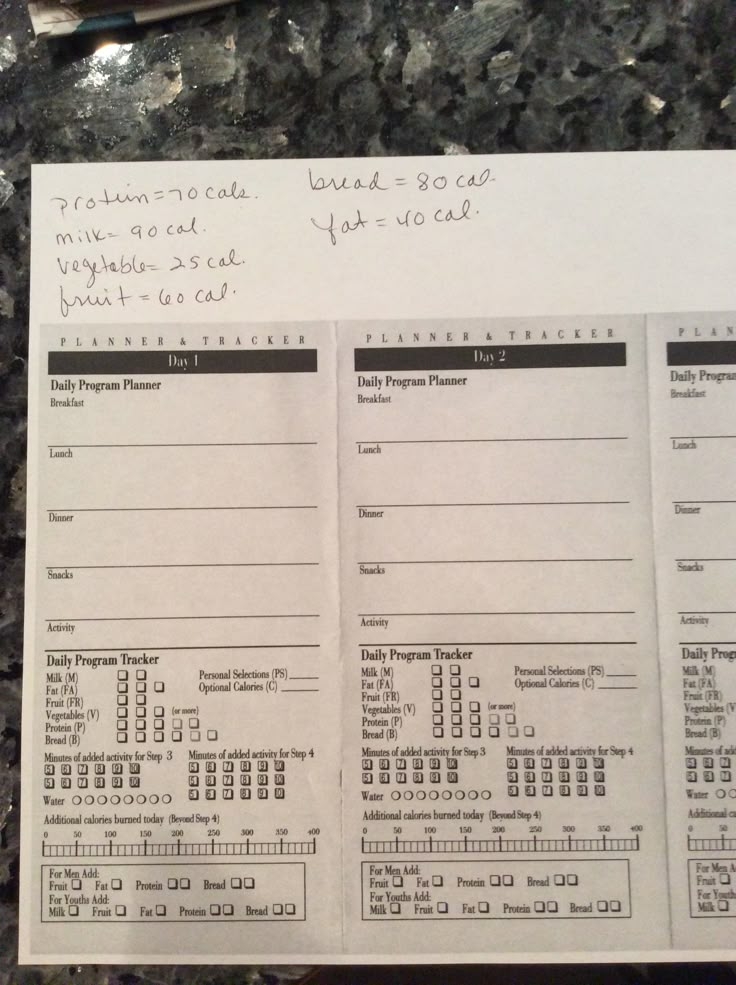 protein=70 cals.
milk= 90 cal.
vegetable= 25 cal.
fruit = 60 cal.
bread = 80 cal.
fat = 40 cal.
PLANNER & TRACKER
Day 1
Daily Program Planner
Breakfast
Lunch
Dinner
Snacks
Activity
Daily Program Tracker
Milk (M)
Fat (FA)
Fruit (FR)
Vegetables (V) (or more)
Protein (P)
Bread (B)
Personal Selections (PS)
Optional Calories (C)
Minutes of added activity for Step 3
5 6 7 8 9 10
5 6 7 8 9 10
Minutes of added activity for Step 4
5 6 7 8 9 10
5 6 7 8 9 10
5 6 7 8 9 10
Water
Additional calories burned today (Beyond Step 4)
0 50 100 150 200 250 300 350 400
For Men Add:
Fruit Fat Protein Bread
For Youths Add:
Milk Fruit Fat Protein Bread
PLANNER & TRACKER
Day 2
Daily Program Planner
Breakfast
Lunch
Dinner
Snacks
Activity
Daily Program Tracker
Milk (M)
Fat (FA)
Fruit (FR)
Vegetables (V) (or more)
Protein (P)
Bread (B)
Personal Selections (PS)
Optional Calories (C)
Minutes of added activity for Step 3
5 6 7 8 9 10
5 6 7 8 9 10
Minutes of added activity for Step 4
5 6 7 8 9 10
5 6 7 8 9 10
5 6 7 8 9 10
Water
Additional calories burned today (Beyond Step 4)
0 50 100 150 200 250 300 350 400
For Men Add:
Fruit Fat Protein Bread
For Youths Add:
Milk Fruit Fat Protein Bread
PLAN
Daily Progra
Breakfast
Lunch
Dinner
Snacks
Activity
Daily Prog
Milk (M)
Fat (FA)
Fruit (FR)
Vegetables (V)
Protein (P)
Bread (B)
Minutes of ad
5 6 7
5 6 7
Water
Additional c
0 50
For Men A
Fruit
For Youth
Milk